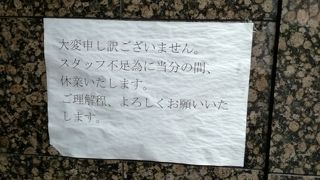 大変申し訳ございません。
スタッフ不足為に当分の間、
休業いたします。
ご理解程、よろしくお願いいた
します。